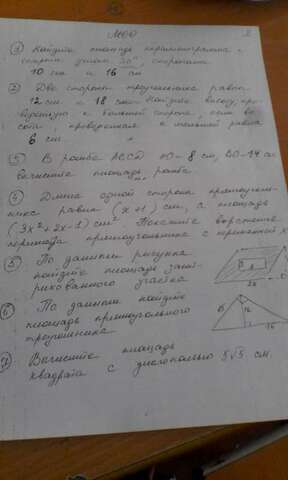 МОО
① Найдите площадь параллелограмма с
острым углом 30°, сторонами
10 см и 16 см
② Две стороны треугольника равны
12 см и 18 см. Найдите высоту, про-
веденную к большей стороне, если вы-
сота, проведенная к меньшей равна
6 см.
③ В ромбе АВСД АО=8 см, ВО=14 см
вычислите площадь ромба.
④ Длина одной стороны прямоуголь-
ника равна (х+1) см, а площадь
(3х²+2х-1) см². Покажите
периметра прямоугольника с переменной х
⑤ По данным рисунка
найдите площадь зашт-
рихованного участка
⑥ По данным найдите
площадь прямоугольного
треугольника.
⑦ Вычислите площадь
квадрата с диагональю 5√3 см.